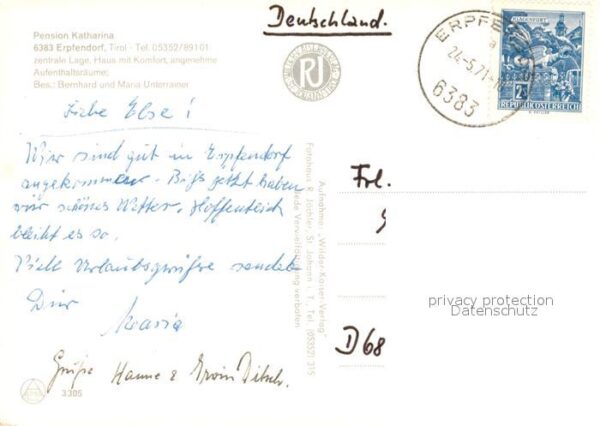 Pension Katharina
6383 Erpfendorf, Tirol - Tel. 05352/89101
zentrale Lage, Haus mit Komfort, angenehme
Aufenthaltsräume;
Bes.: Bernhard und Maria Unterrainer
Liebe Else!
Wir sind gut in Erpfendorf
angekommen. Bis jetzt haben
wir schönes Wetter. Hoffentlich
bleibt es so.
Viele Urlaubsgrüsse sendet
Dir
Maria
Grüße Hanne & Erwin
3305
RJ
Aufnahme: "Wilder-Kaiser-Verlag"
Fotohaus R. Jöchler, St. Johann i. T., Tel. (05352) 315
Jede Vervielfältigung verboten
Deutschland.
ERPFE
24.-5.71
6383
KLAGENFURT
REPUBLIK ÖSTERREICH
Frl.
D68
privacy protection
Datenschutz